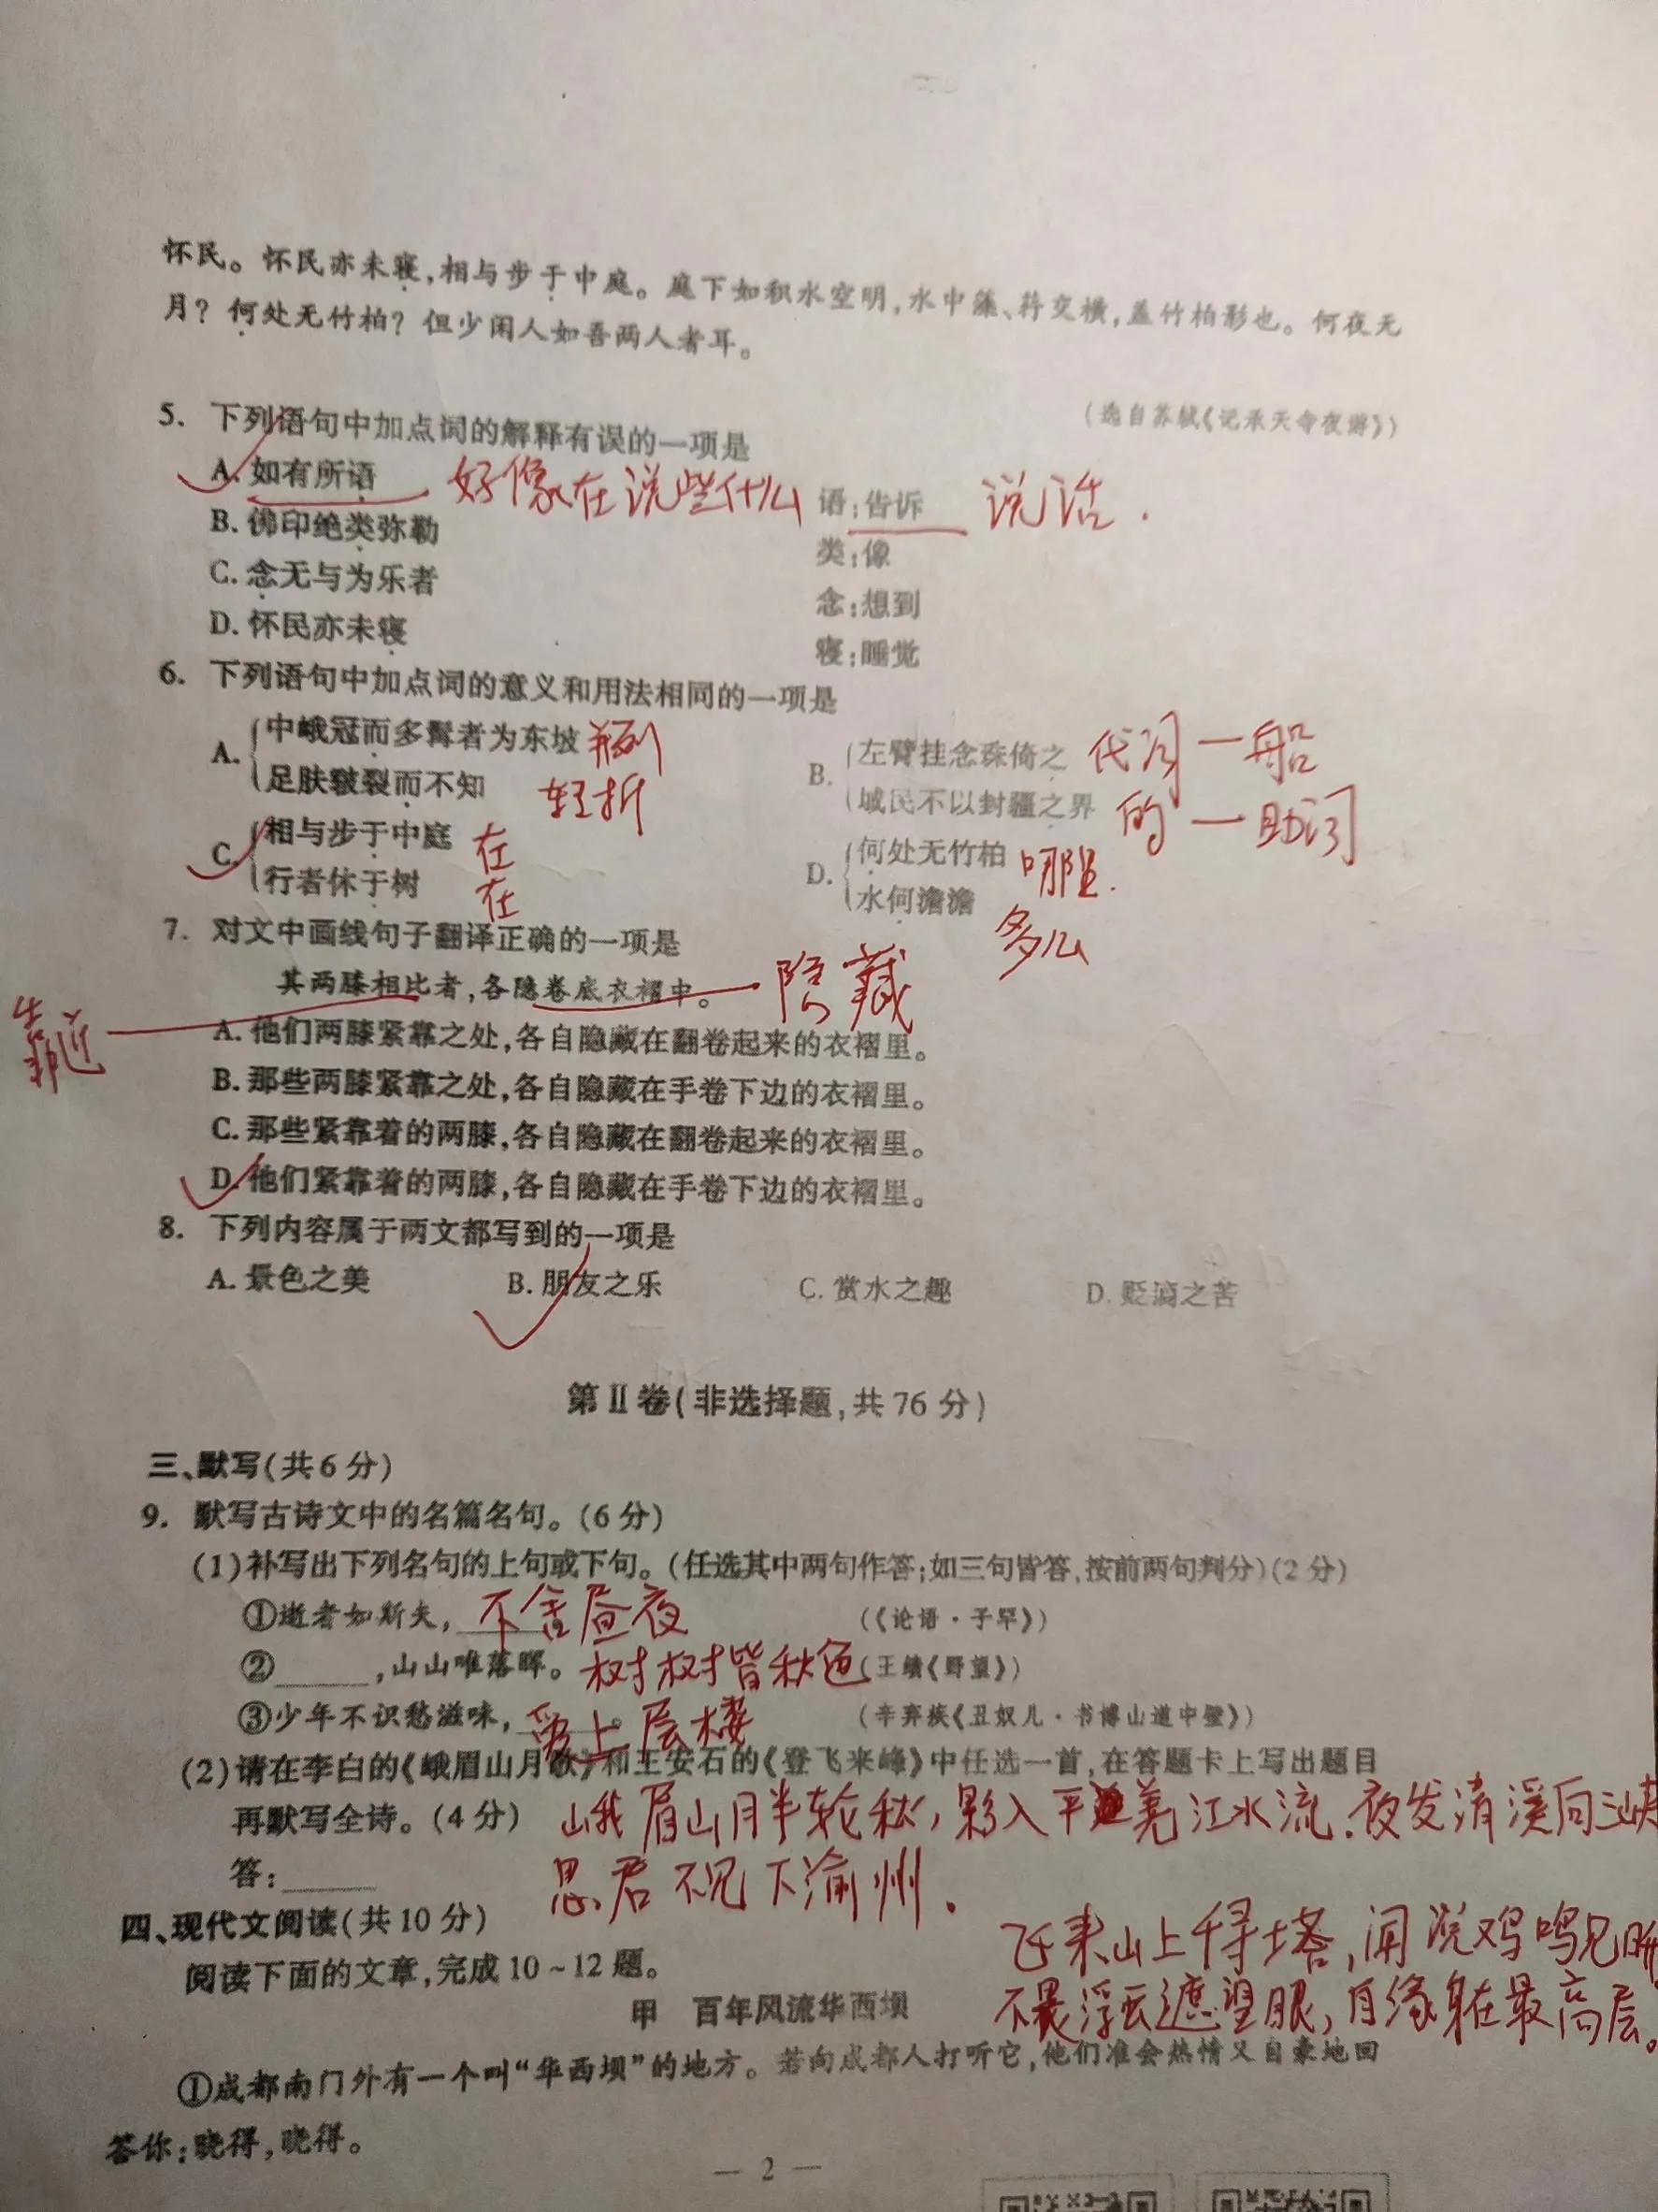 怀民。怀民亦未寝，相与步于中庭。庭下如积水空明，水中藻、荇交横，盖竹柏影也。何夜无
月？何处无竹柏？但少闲人如吾两人者耳。
（选自苏轼《记承天寺夜游》）
5. 下列语句中加点词的解释有误的一项是
A. 如有所语 好像在说些什么 语：告诉 说话.
B. 佛印绝类弥勒 类：像
C. 念无与为乐者 念：想到
D. 怀民亦未寝 寝：睡觉
6. 下列语句中加点词的意义和用法相同的一项是
A. 中峨冠而多髯者为东坡
足肤皲裂而不知 轻折
B. 左臂挂念珠倚之 代词一船
域民不以封疆之界 的一助词
C. 相与步于中庭 在
行者休于树 在
D. 何处无竹柏 哪里.
水何澹澹 多么
7. 对文中画线句子翻译正确的一项是
其两膝相比者，各隐卷底衣褶中。 隐藏
靠近
A. 他们两膝紧靠之处，各自隐藏在翻卷起来的衣褶里。
B. 那些两膝紧靠之处，各自隐藏在手卷下边的衣褶里。
C. 那些紧靠着的两膝，各自隐藏在翻卷起来的衣褶里。
D. 他们紧靠着的两膝，各自隐藏在手卷下边的衣褶里。
8. 下列内容属于两文都写到的一项是
A. 景色之美 B. 朋友之乐 C. 赏水之趣 D. 贬谪之苦
第Ⅱ卷（非选择题，共76分）
三、默写（共6分）
9. 默写古诗文中的名篇名句。（6分）
（1）补写出下列名句的上句或下句。（任选其中两句作答；如三句皆答，按前两句判分）（2分）
①逝者如斯夫，不舍昼夜 （《论语·子罕》）
②______，山山唯落晖。树树皆秋色（王绩《野望》）
③少年不识愁滋味，爱上层楼。 （辛弃疾《丑奴儿·书博山道中壁》）
（2）请在李白的《峨眉山月歌》和王安石的《登飞来峰》中任选一首，在答题卡上写出题目
再默写全诗。（4分） 峨眉山月半轮秋，影入平羌江水流.夜发清溪向三峡
答：______ 思君不见下渝州.
四、现代文阅读（共10分）
飞来山上千寻塔，闻说鸡鸣见
阅读下面的文章，完成10~12题。
不畏浮云遮望眼，自缘身在最高层。
甲 百年风流华西坝
①成都南门外有一个叫“华西坝”的地方。若向成都人打听它，他们准会热情又自豪地回
答你：晓得，晓得。
— 2 —